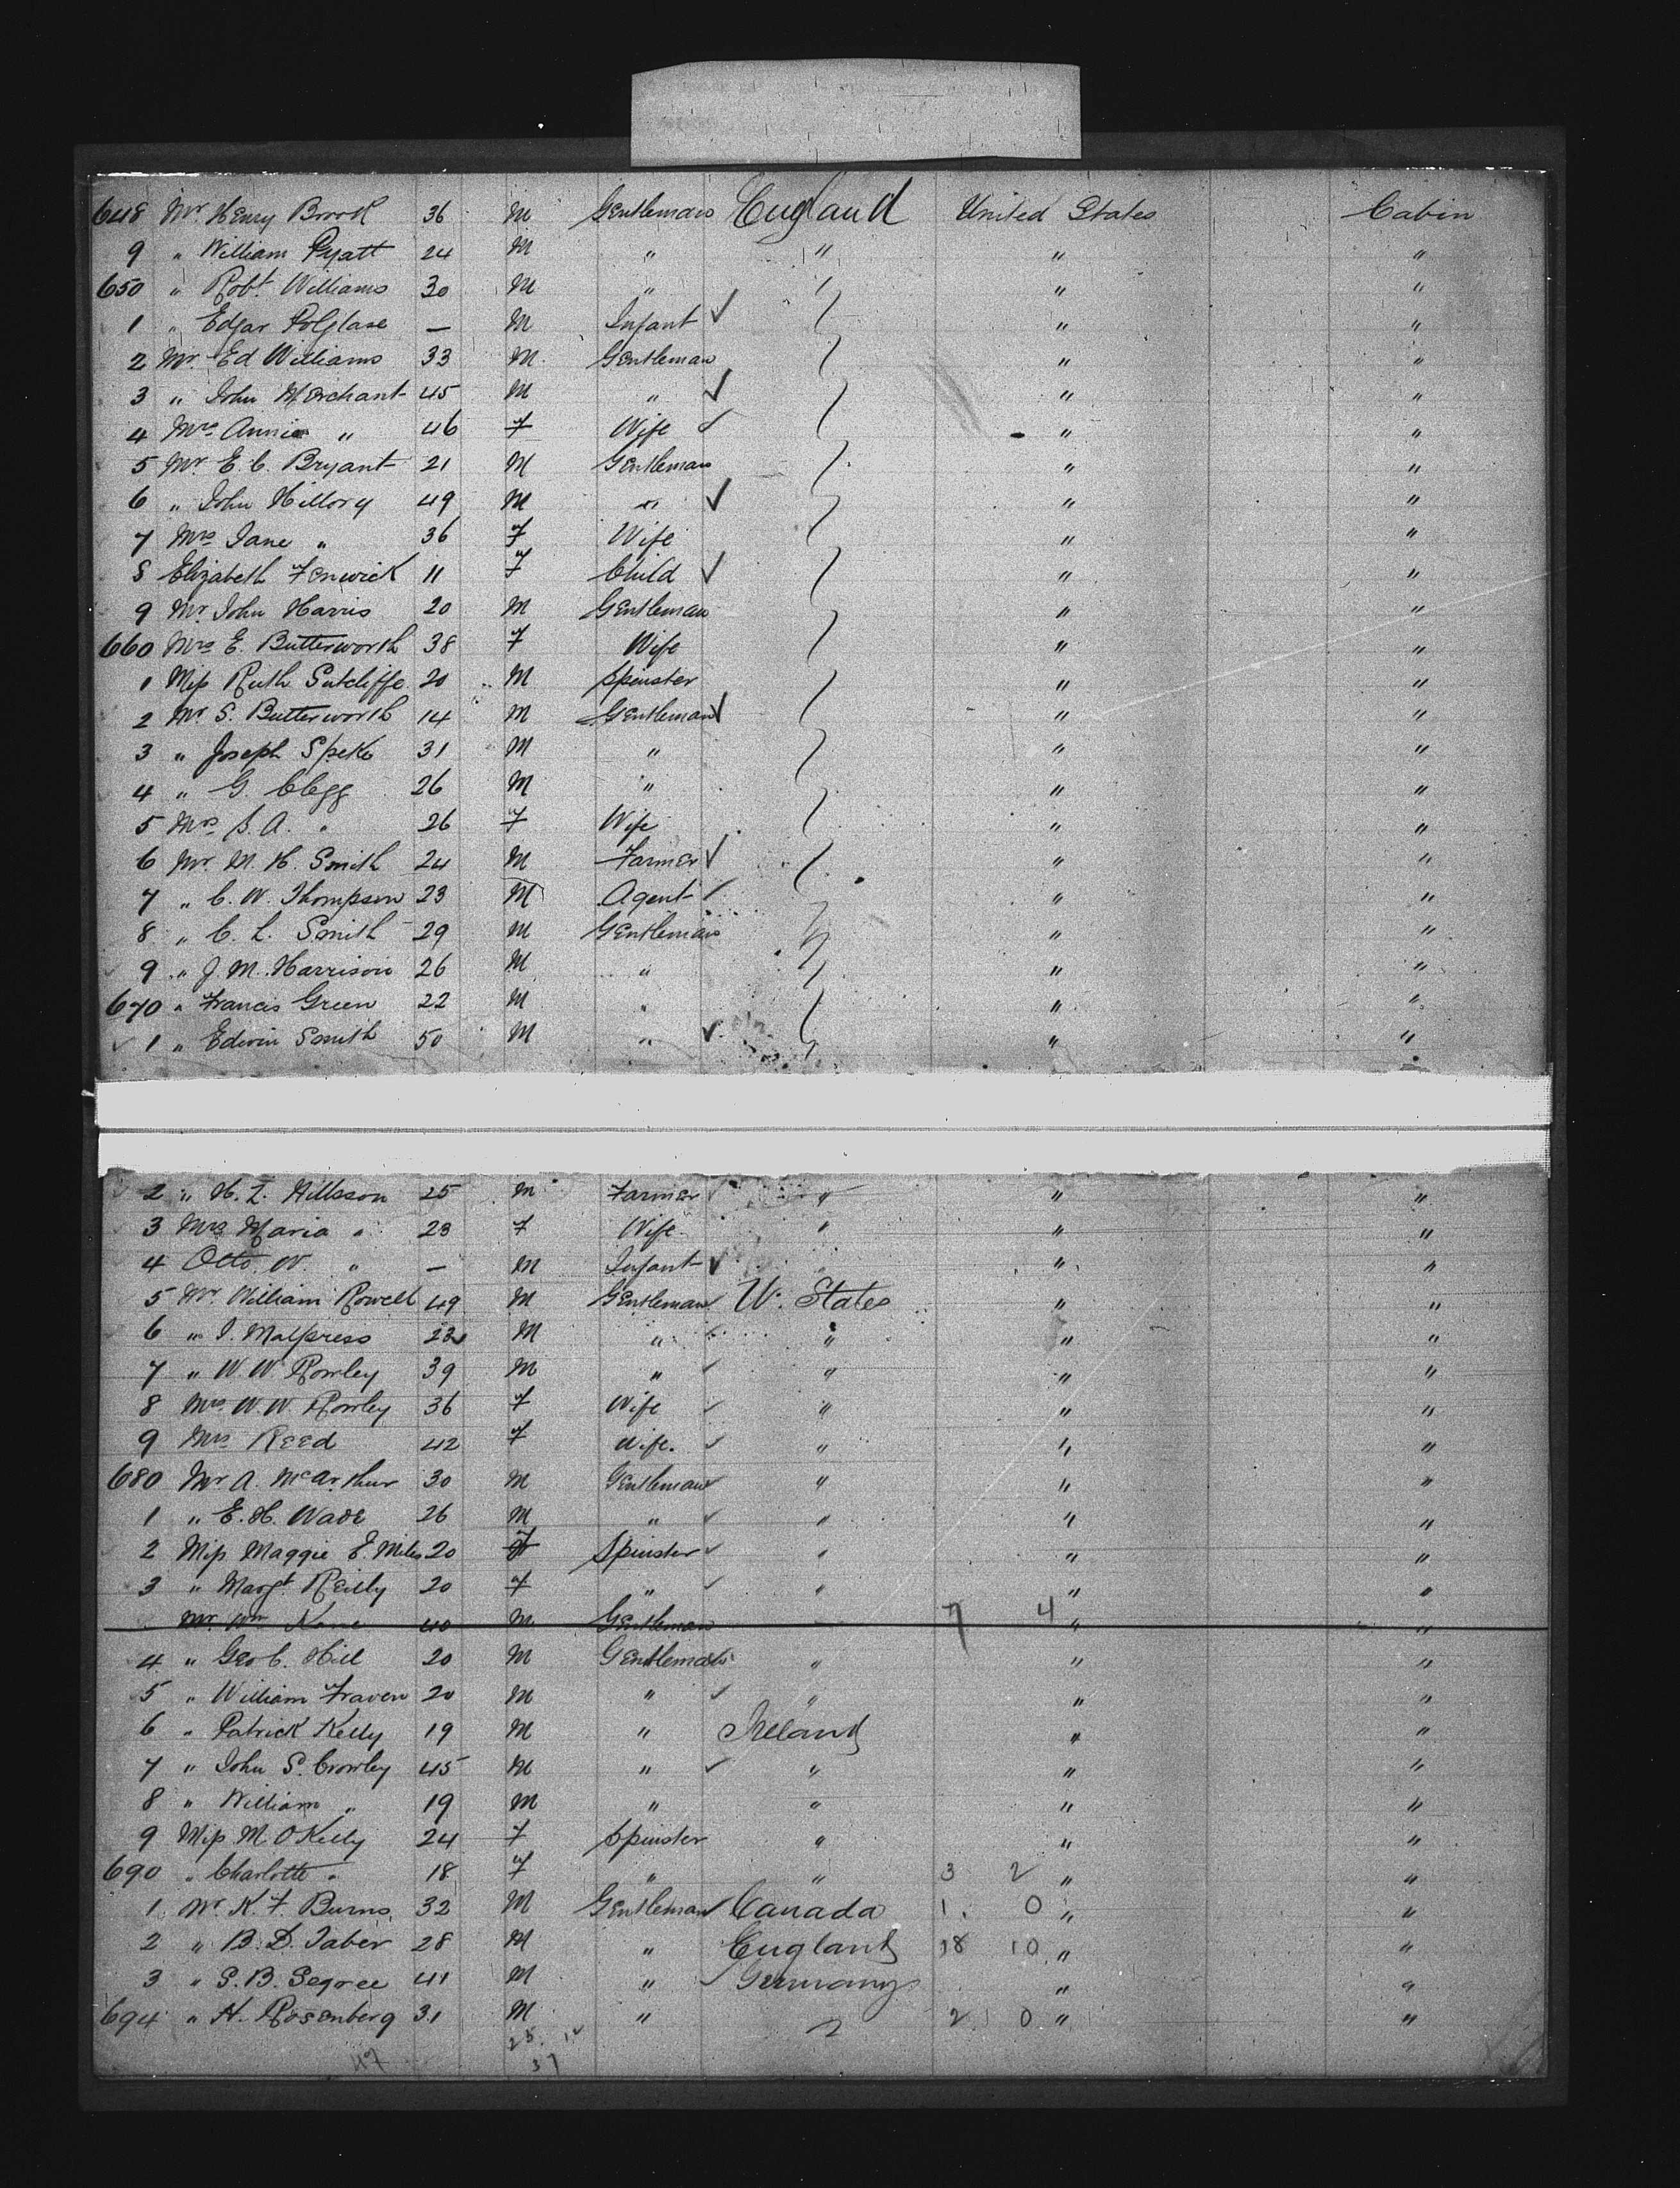 648 Mr Henry Brook 36 M Gentleman England United States Cabin
9 " William Pyatt 24 M " " " "
650 " Robt. Williams 30 M " " " "
1 " Edgar Polglase — M Infant ✓ " "
2 Mr. Ed Williams 33 M Gentleman " "
3 " John Merchant 45 M " ✓ " "
4 Mrs Annie " 46 F Wife ✓ " "
5 Mr E. C. Bryant 21 M Gentleman " "
6 " John Hillory 49 M " ✓ " "
7 Mrs Jane " 36 F Wife " "
8 Elizabeth Fenwick 11 F Child ✓ " "
9 Mr. John Harris 20 M Gentleman " "
660 Mrs E. Butterworth 38 F Wife " "
1 Miss Ruth Sutcliffe 20 M Spinster " "
2 Mr. S. Butterworth 14 M Gentleman ✓ " "
3 " Joseph Speke 31 M " " "
4 " G. Clegg 26 M " " "
5 Mrs S. A. " 26 F Wife " "
6 Mr. M. H. Smith 24 M Farmer ✓ " "
7 " C. W. Thompson 23 M Agent ✓ " "
8 " C. L. Smith 29 M Gentleman " "
9 " J. M. Harrison 26 M " " "
670 " Francis Green 22 M " " "
1 " Edwin Smith 50 M " ✓ " "
2 " H. L. 25 M Farmer " " "
3 Mrs Maria " 23 F Wife " " "
4 Otto W. " — M Infant ✓ " "
5 Mr. William Rowell 49 M Gentleman ✓ U. States " "
6 " J. Malpress 23 M " " " "
7 " W. W. Rowley 39 M " ✓ " " "
8 Mrs. W. W. Rowley 36 F Wife ✓ " " "
9 Mrs Reed 42 F Wife. ✓ " " "
680 Mr A. McArthur 30 M Gentleman ✓ " " "
1 " E. H. Wade 26 M " ✓ " " "
2 Miss Maggie E. Miles 20 F Spinster ✓ " " "
3 " Margt. Reilly 20 F " ✓ " " "
Mr. Wm 40 M Gentleman 7 4 " "
4 " Geo C. Hill 20 M Gentleman " " "
5 " William Fraven 20 M " ✓ " " "
6 " Patrick Kelly 19 M " Ireland " "
7 " John S. Crowley 45 M " ✓ " " "
8 " William " 19 M " " " "
9 Miss M. OKelly 24 F Spinster " " "
690 " Charlotte " 18 F " " 3 2 " "
1 Mr. K. F. Burns 32 M Gentleman ✓ Canada 1. 0 " "
2 " B. D. Taber 28 M " England 18 10 " "
3 " S. B. Segree 41 M " ✓ Germany " "
694 " H. Rosenberg 31 M " 2 0 " "
25. 12
47 37